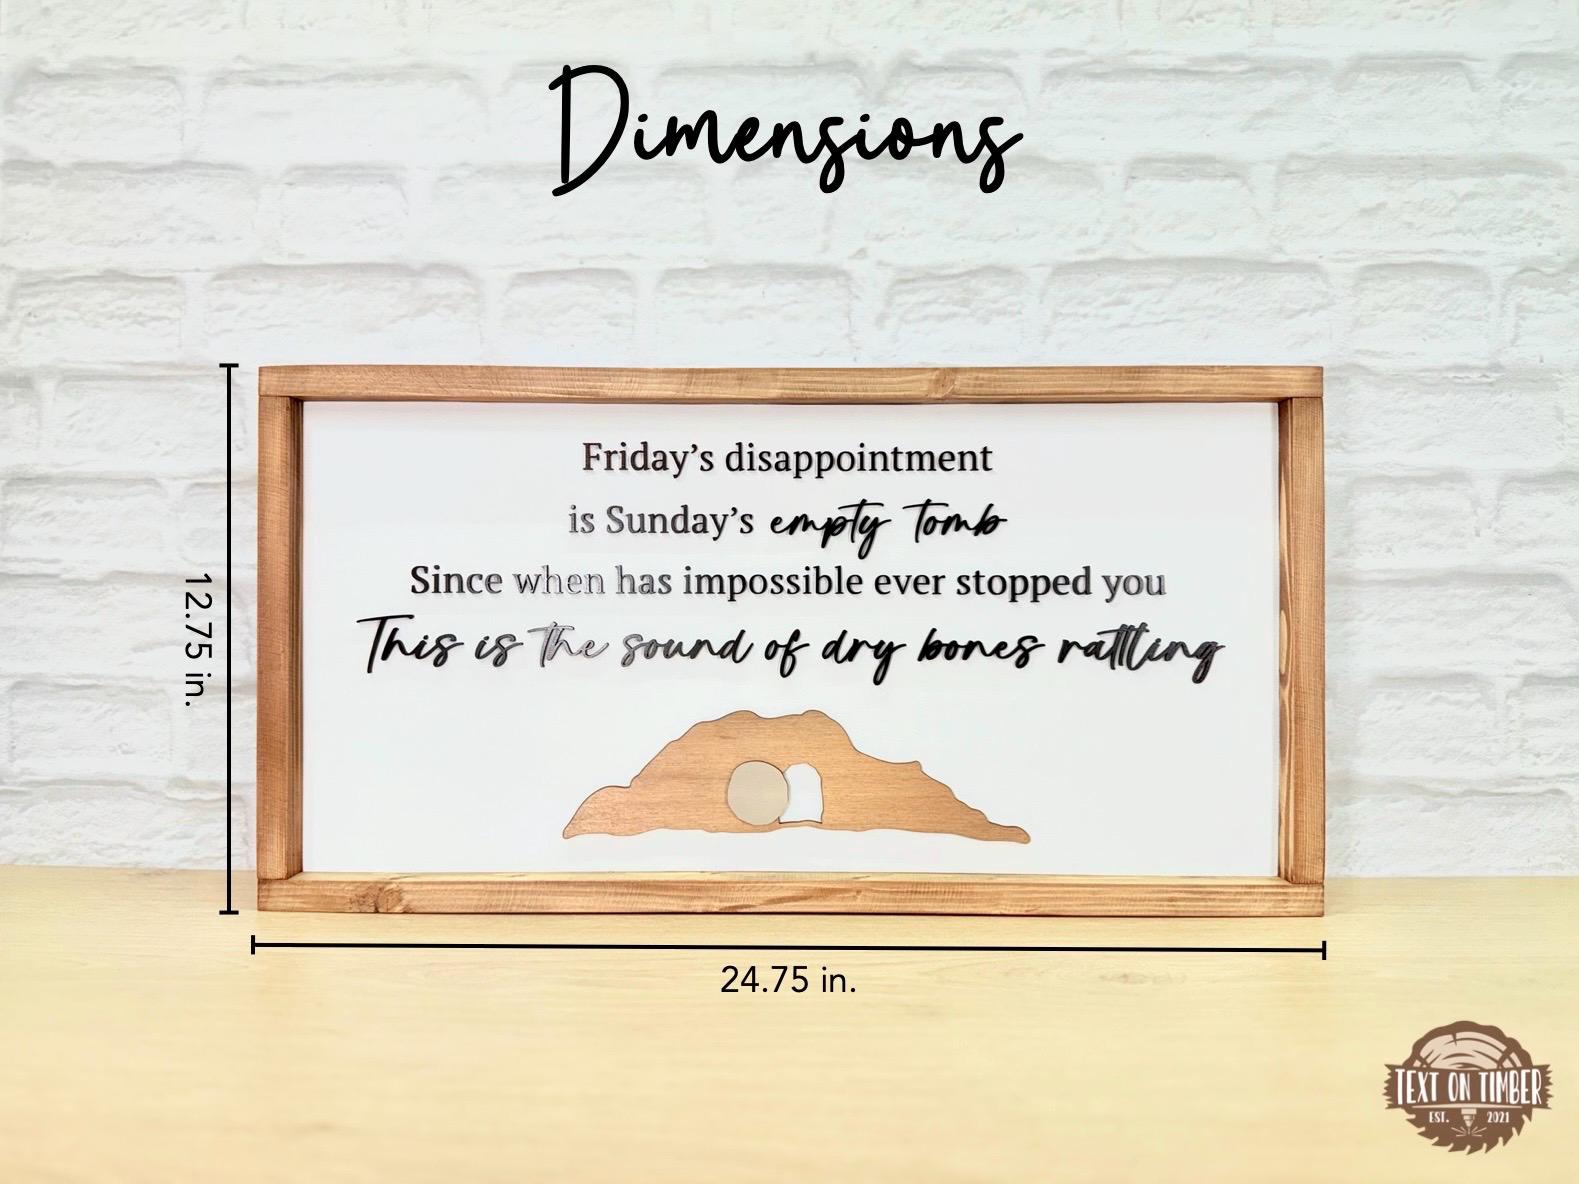 Dimensions
Friday's disappointment
is Sunday's empty tomb
Since when has impossible ever stopped you
This is the sound of dry bones rattling
12.75 in.
24.75 in.
TEXT ON TIMBER
EST. 2021